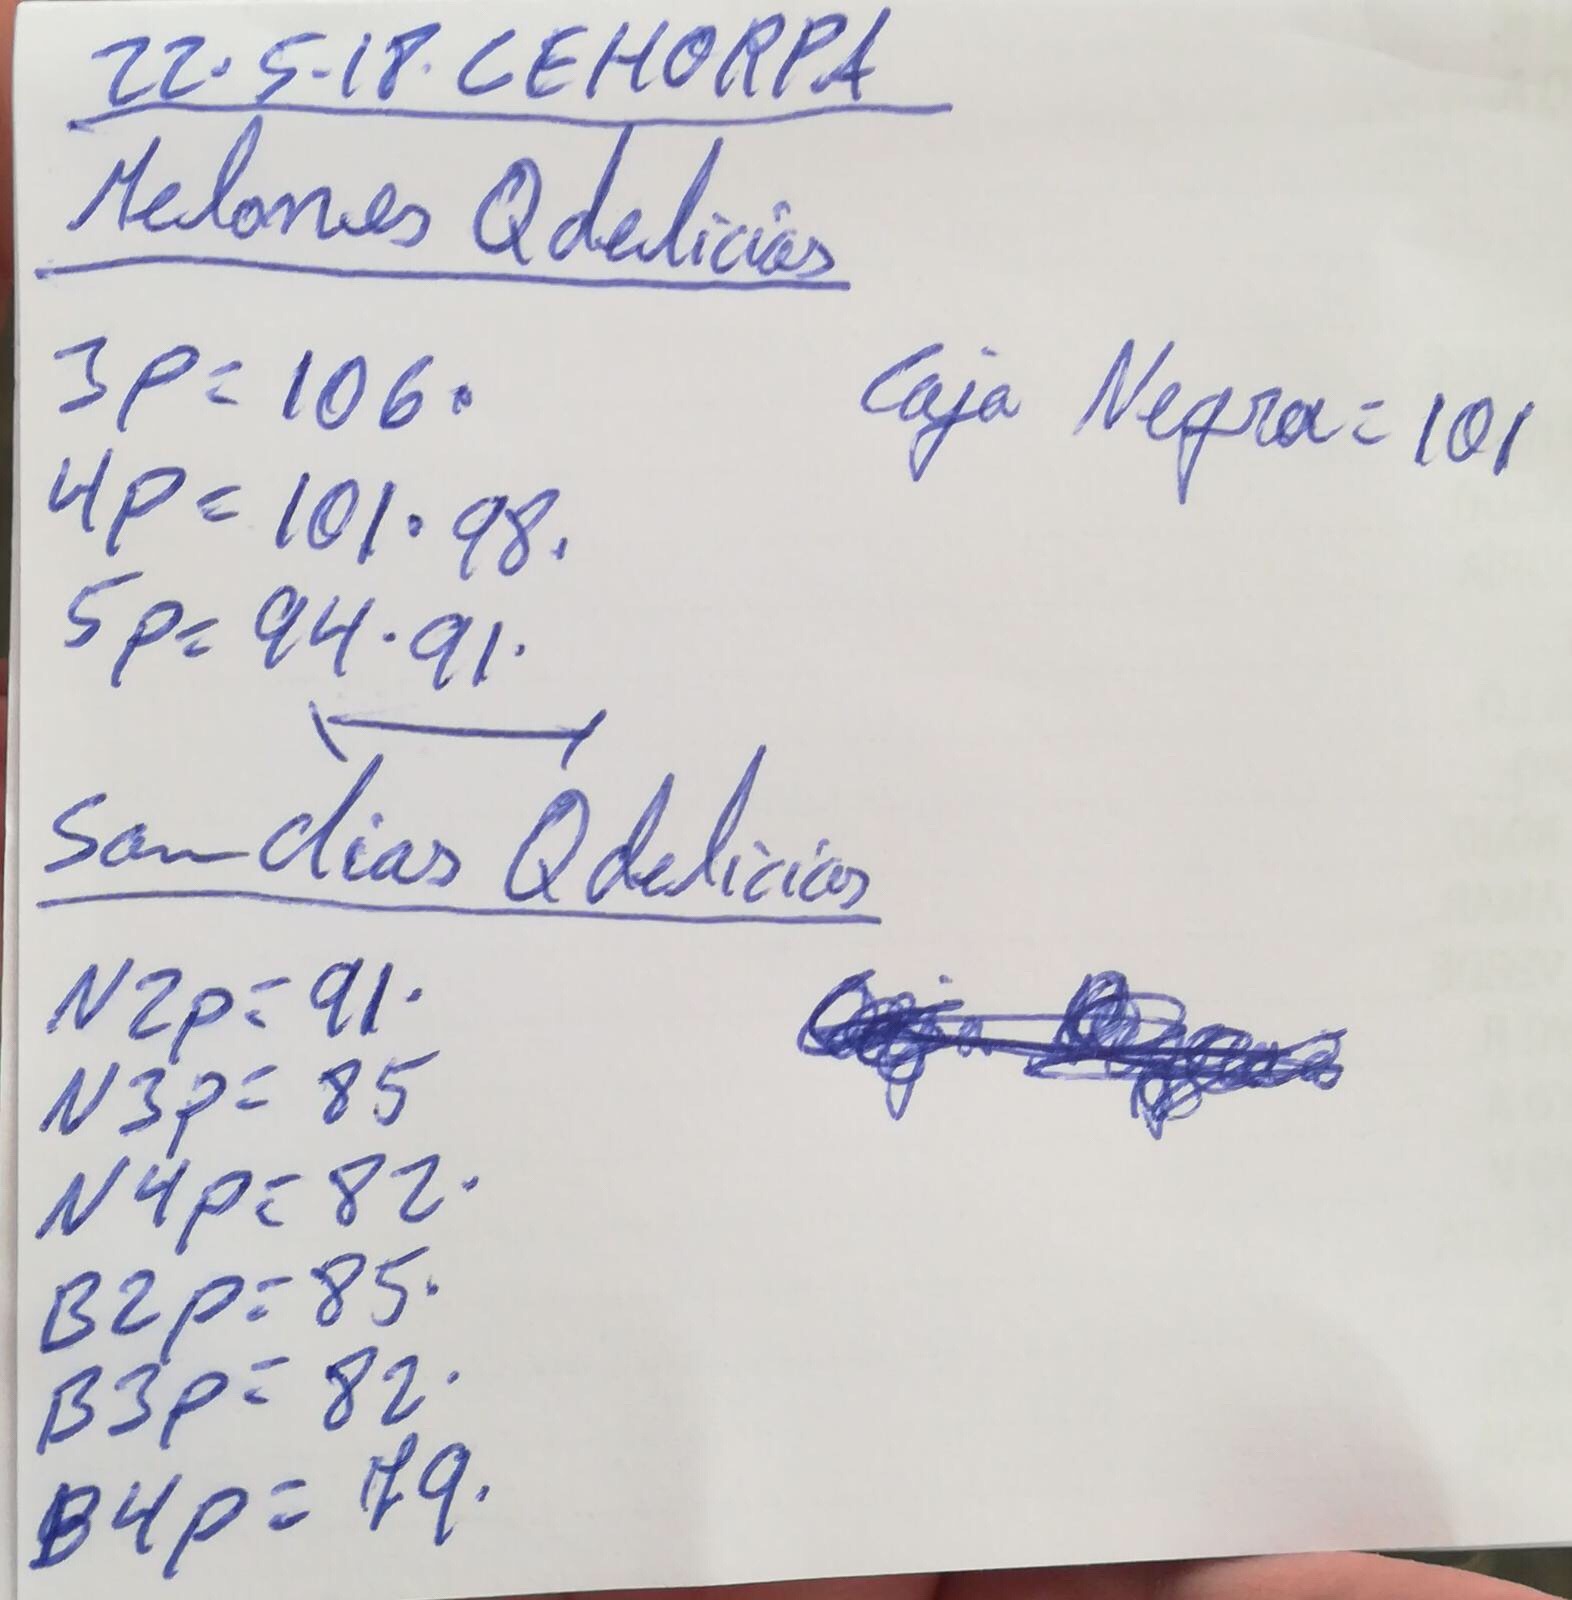 22.5-18. CEHORPA
Melones Qdelicias
3p= 106.
Caja Negra= 101
4p= 101. 98.
5p= 94. 91.
Sandias Qdelicias
N2p= 91.
N3p= 85
N4p= 82.
B2p= 85.
B3p= 82.
B4p= 79.